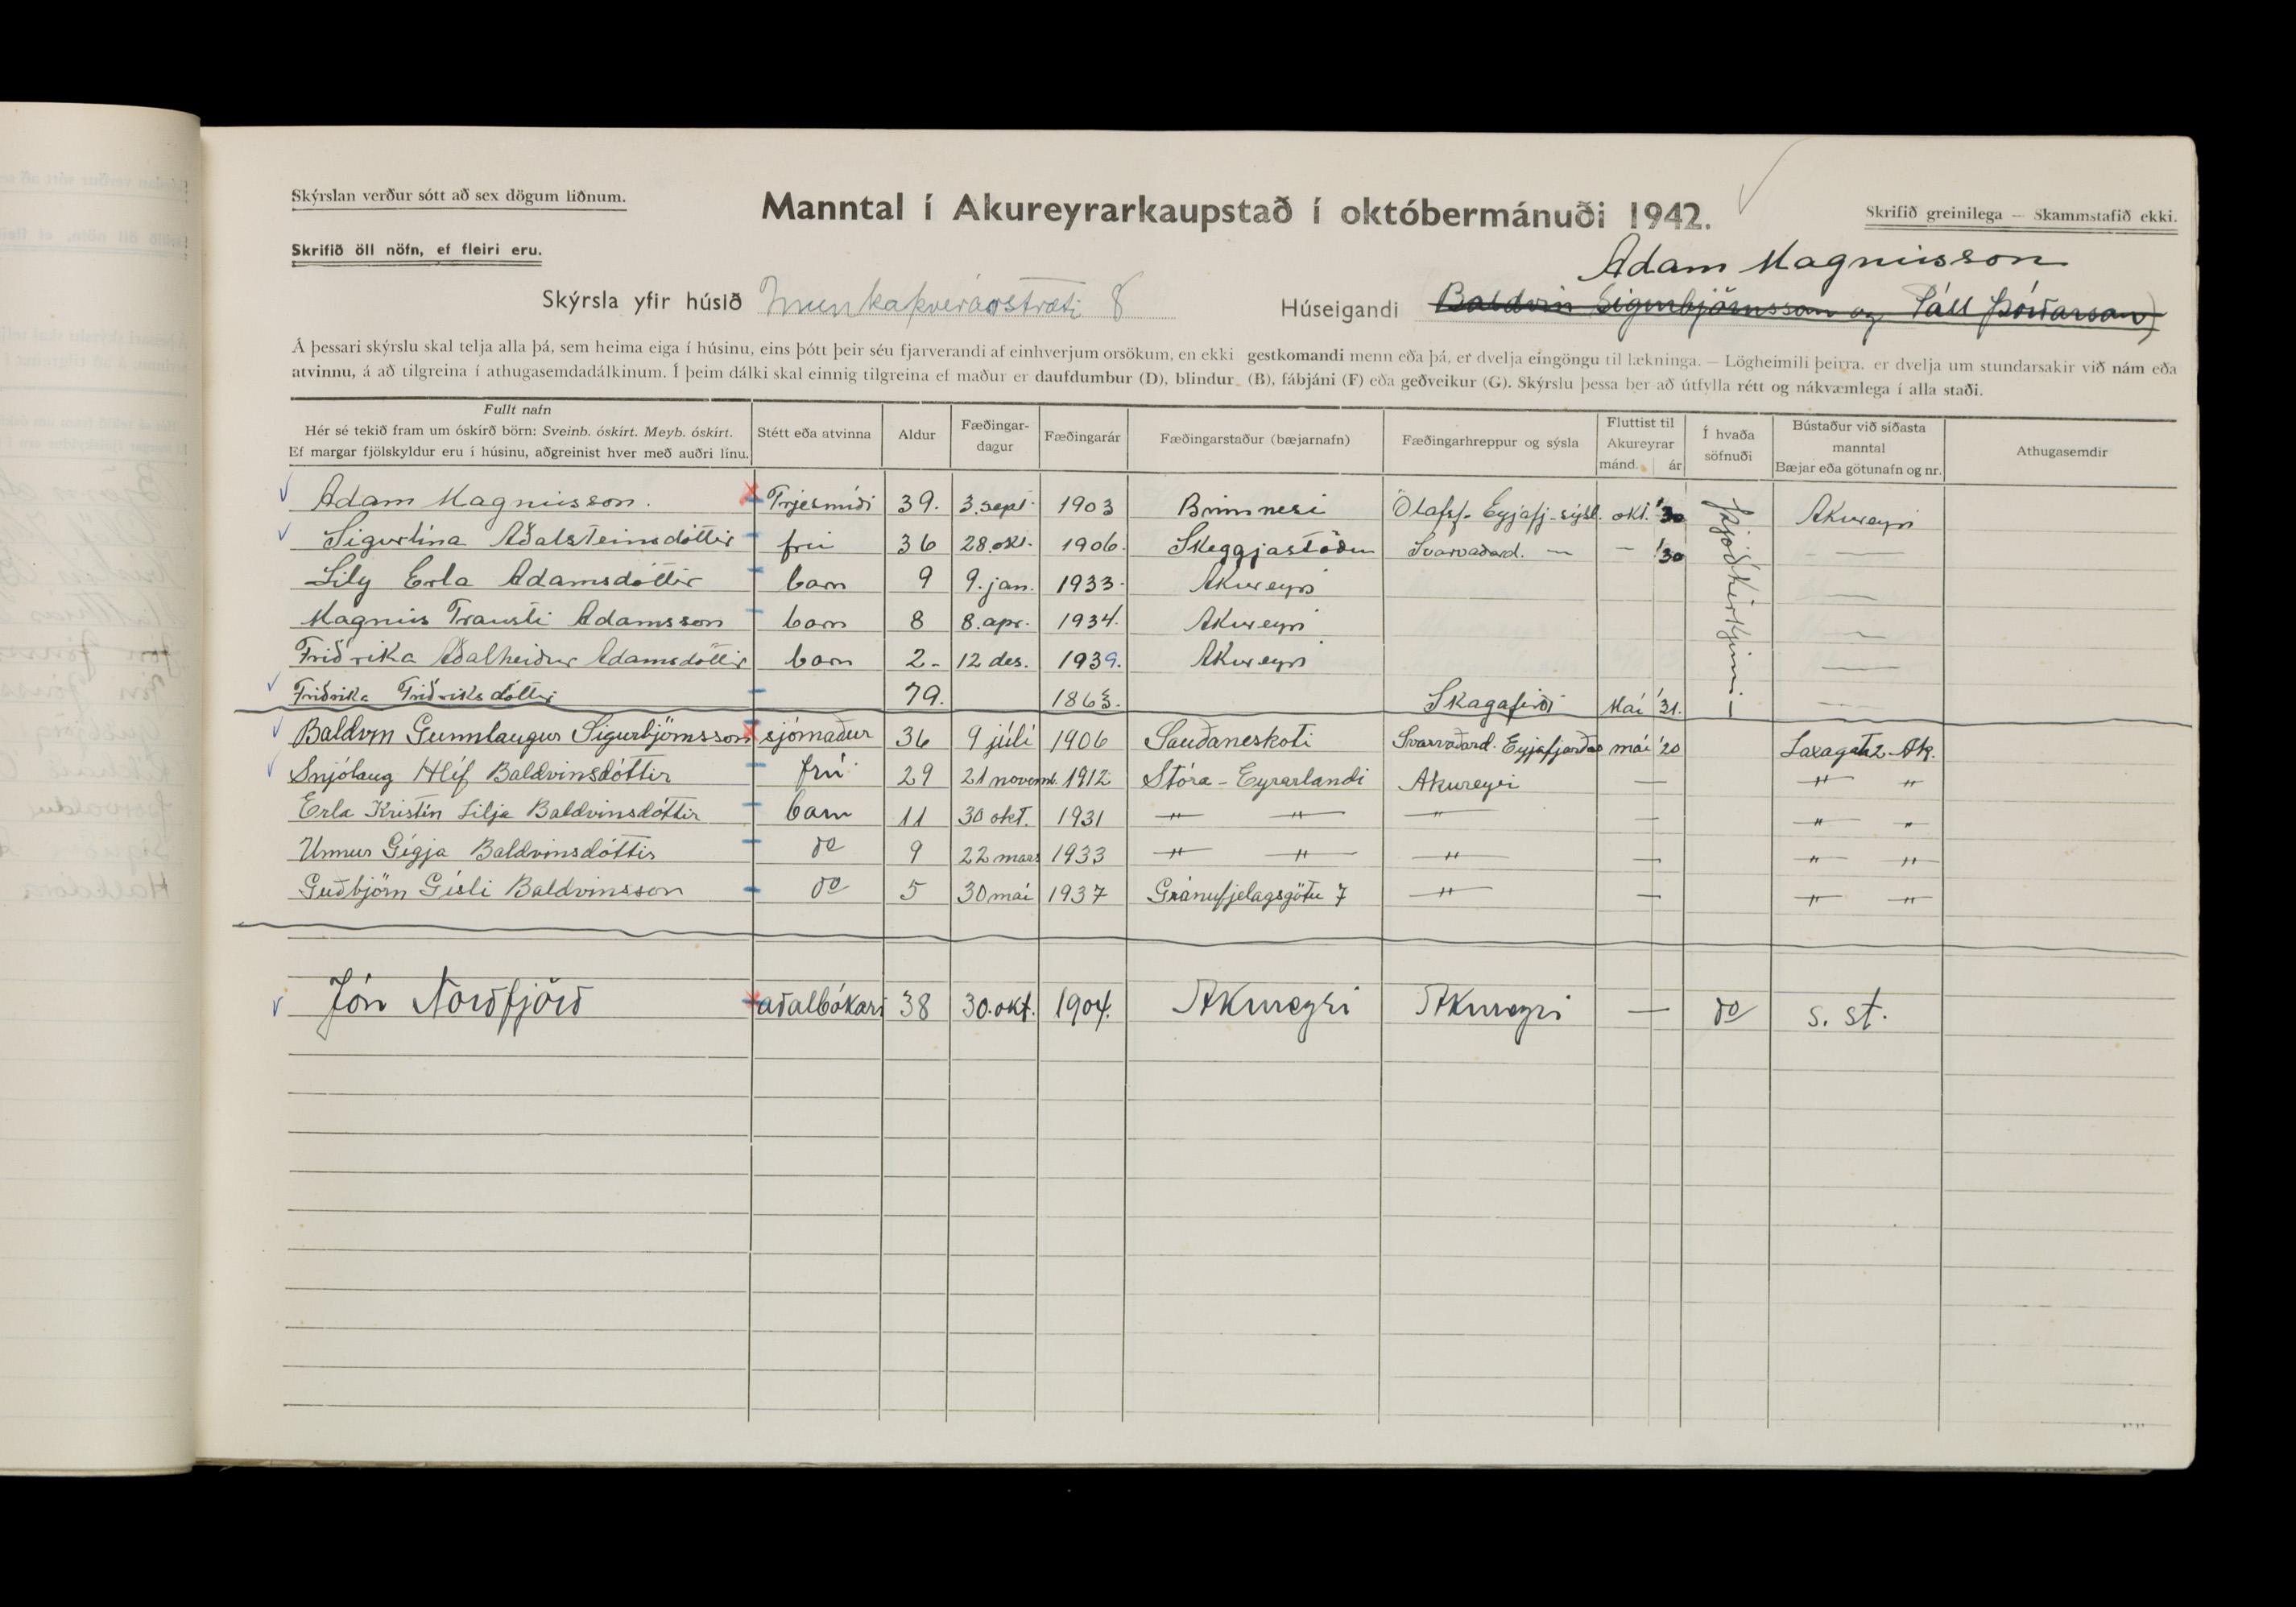 Skýrslan verður sótt að sex dögum liðnum.
Manntal í Akureyrarkaupstað í októbermánuði 1942.
Skrifið greinilega — Skammstafið ekki.
Skrifið öll nöfn, ef fleiri eru.
Adam Magnússon
Skýrsla yfir húsið Munkaþverárstræti 8 Húseigandi Baldvin Sigurbjörnsson og Páll Þórðarson
Á þessari skýrslu skal telja alla þá, sem heima eiga í húsinu, eins þótt þeir séu fjarverandi af einhverjum orsökum, en ekki gestkomandi menn eða þá, er dvelja eingöngu til lækninga. — Lögheimili þeirra, er dvelja um stundarsakir við nám eða
atvinnu, á að tilgreina í athugasemdadálkinum. Í þeim dálki skal einnig tilgreina ef maður er daufdumbur (D), blindur (B), fábjáni (F) eða geðveikur (G). Skýrslu þessa ber að útfylla rétt og nákvæmlega í alla staði.
Fullt nafn
Hér sé tekið fram um óskírð börn: Sveinb. óskírt. Meyb. óskírt.
Ef margar fjölskyldur eru í húsinu, aðgreinist hver með auðri línu.
Stétt eða atvinna
Aldur
Fæðingar-
dagur
Fæðingarár
Fæðingarstaður (bæjarnafn)
Fæðingarhreppur og sýsla
Fluttist til
Akureyrar
mánd. ár
Í hvaða
söfnuði
Bústaður við síðasta
manntal
Bæjar eða götunafn og nr.
Athugasemdir
Adam Magnússon. Trjesmíði 39. 3. sept. 1903 Brimnesi Ólafsf. Eyjafj-sýsl. okt. '30 Þjóðkirkjunni Akureyri
Sigurlína Aðalsteinsdóttir frú 36 28. okt. 1906. Skeggjastöðum Svarvaðard. — — '30 —
Lily Erla Adamsdóttir barn 9 9. jan. 1933. Akureyri —
Magnús Trausti Adamsson barn 8 8. apr. 1934. Akureyri —
Friðrika Aðalheiður Adamsdóttir barn 2- 12 des. 1939. Akureyri —
Friðrika Friðriksdóttir 79. 1863. Skagafirði Mai '31. —
Baldvin Gunnlaugur Sigurbjörnsson sjómaður 36 9 júlí 1906 Sauðaneskoti Svarvaðard. Eyjafjarðar mai '20 Laxagata 2. Ak.
Snjólaug Hlíf Baldvinsdóttir frú 29 21 novemb. 1912 Stóra-Eyrarlandi Akureyri — " "
Erla Kristín Lilja Baldvinsdóttir barn 11 30 okt. 1931 " " " — " "
Unnur Gígja Baldvinsdóttir do 9 22 mars 1933 " " " — " "
Guðbjörn Gísli Baldvinsson do 5 30 mai 1937 Gránufjelagsgötu 7 " — " "
Jón Norðfjörð aðalbókari 38 30. okt. 1904. Akureyri Akureyri — do s. st.